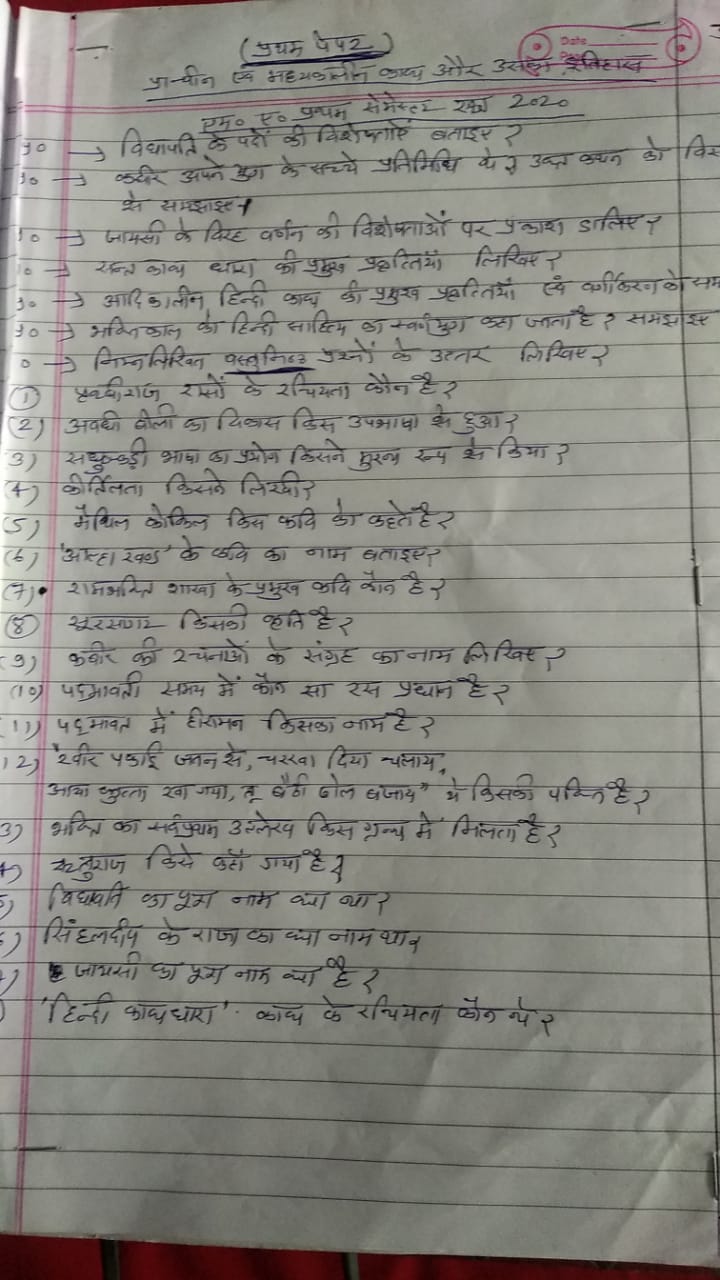 (प्रथम पेपर)
Date
प्राचीन एवं मध्यकालीन काव्य और उसका इतिहास
एम० ए० प्रथम सेमेस्टर 2020
प्र० → विद्यापति के पदों की विशेषताएँ बताइए ?
प्र० → कबीर अपने युग के सच्चे प्रतिनिधि थे ? उक्त कथन को
से समझाइए।
प्र० → जायसी के विरह वर्णन की विशेषताओं पर प्रकाश डालिए ?
प्र० → सन्त काव्य धारा की प्रमुख प्रवृत्तियाँ लिखिए ?
प्र० → आदिकालीन हिन्दी काव्य की प्रमुख प्रवृत्तियाँ एवं वर्गीकरण को
प्र० → भक्तिकाल को हिन्दी साहित्य का स्वर्णयुग कहा जाता है ? समझाइए
० → निम्नलिखित वस्तुनिष्ठ प्रश्नों के उत्तर लिखिए ?
(1) पृथ्वीराज रासो के रचियता कौन है ?
(2) अवधी बोली का विकास किस उपभाषा से हुआ ?
3) सधुक्कड़ी भाषा का प्रयोग किसने मुख्य रूप से किया ?
(4) कीर्तिलता किसने लिखी ?
(5) मैथिल कोकिल किस कवि को कहते है ?
(6) 'आल्हा खण्ड' के कवि का नाम बताइए ?
(7) रामभक्ति शाखा के प्रमुख कवि कौन है ?
(8) सूरसागर किसकी कृति है ?
(9) कबीर की रचनाओं के संग्रह का नाम लिखिए ?
(10) पद्मावती समय में कौन सा रस प्रधान है ?
(11) पद्मावत में हीरामन किसका नाम है ?
12) "खीर पकाई जतन से, चरखा दिया चलाय,
आया कुत्ता खा गया, तू बैठी ढोल बजाय" ये किसकी पंक्ति है ?
3) भक्ति का सर्वप्रथम उल्लेख किस ग्रन्थ में मिलता है ?
) ऋतुराज किसे कहाँ गया है ?
) विद्यापति का पूरा नाम क्या था ?
) सिंहलद्वीप के राजा का क्या नाम था ?
) जायसी का पूरा नाम क्या है ?
'हिन्दी काव्यधारा' काव्य के रचियता कौन थे ?